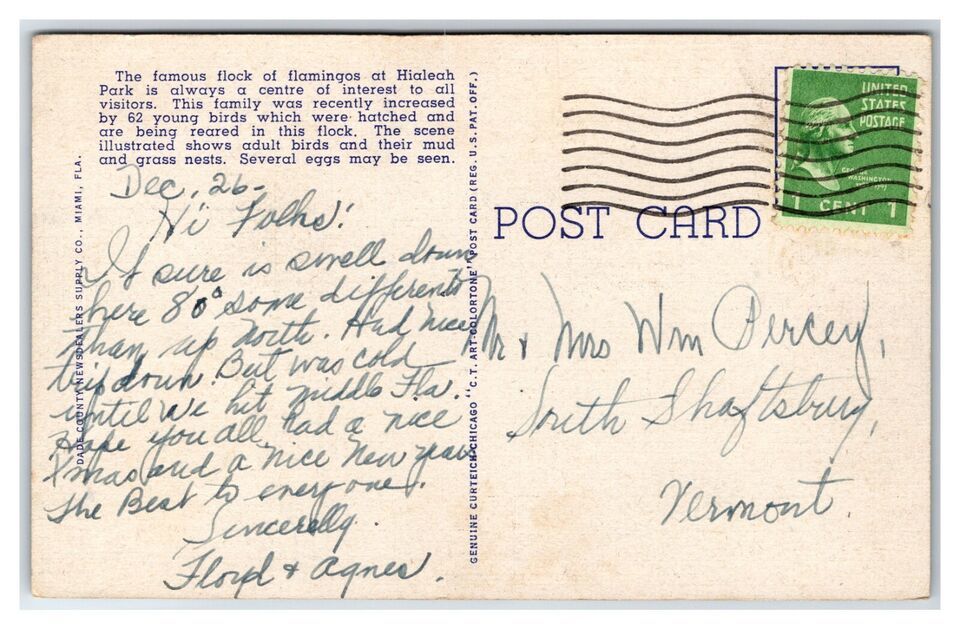 The famous flock of flamingos at Hialeah
Park is always a centre of interest to all
visitors. This family was recently increased
by 62 young birds which were hatched and
are being reared in this flock. The scene
illustrated shows adult birds and their mud
and grass nests. Several eggs may be seen.
Dec, 26-
Hi Folks!
It sure is swell down
here 80° some different
than up north. Had nice
trip down. But was cold
until we hit middle Fla.
Hope you all had a nice
Xmas and a nice New year
The Best to everyone.
Sincerely.
Floyd & Agnes.
DADE COUNTY NEWSDEALERS SUPPLY CO., MIAMI, FLA.
GENUINE CURTEICH-CHICAGO "C.T. ART-COLORTONE" POST CARD (REG. U.S. PAT. OFF.)
POST CARD
UNITED
STATES
POSTAGE
GEORGE
WASHINGTON
1 CENT 1
Mr & Mrs Wm Percey,
South Shaftsbury,
Vermont.